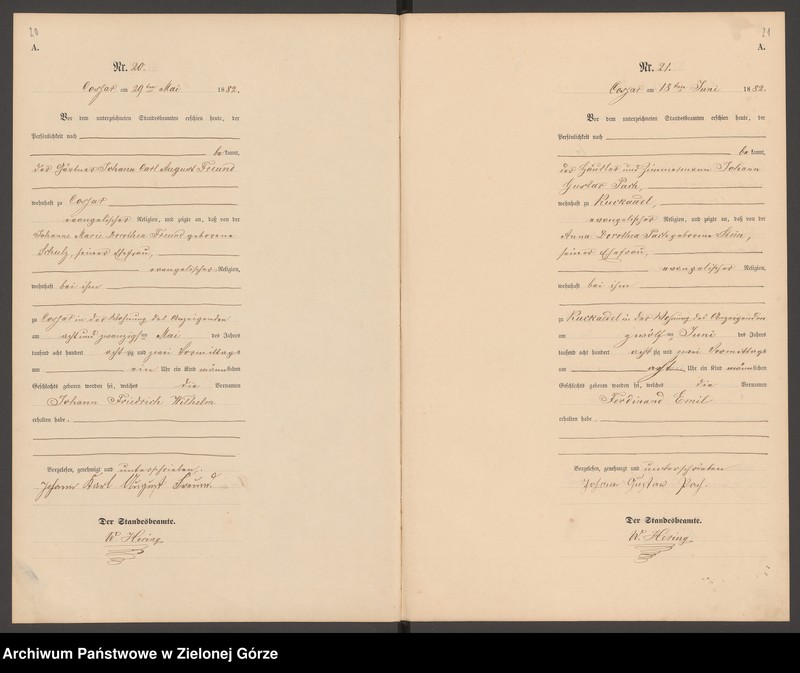 20
A.
Nr. 20.
Cossar am 29ten Mai 1882.
Vor dem unterzeichneten Standesbeamten erschien heute, der
Persönlichkeit nach
bekannt,
der Gärtner Johann Carl August Freund
wohnhaft zu Cossar
evangelischer Religion, und zeigte an, daß von der
Johanne Marie Dorothea Freund geborene
Schulz, seiner Ehefrau,
evangelischer Religion,
wohnhaft bei ihm
zu Cossar in der Wohnung des Anzeigenden
am acht und zwanzigsten Mai des Jahres
tausend acht hundert achtzig und zwei Vormittags
um ein Uhr ein Kind männlichen
Geschlechts geboren worden sei, welches die Vornamen
Johann Friedrich Wilhelm
erhalten habe.
Vorgelesen, genehmigt und unterschrieben.
Johann Karl August Freund.
Der Standesbeamte.
W. Hering
21
A.
Nr. 21.
Cossar am 13ten Juni 1882.
Vor dem unterzeichneten Standesbeamten erschien heute, der
Persönlichkeit nach
bekannt,
der Häusler und Zimmermann Johann
Gustav Pach,
wohnhaft zu Kuckädel,
evangelischer Religion, und zeigte an, daß von der
Anna Dorothea Pach geborene
seiner Ehefrau,
evangelischer Religion,
wohnhaft bei ihm
zu Kuckädel in der Wohnung des Anzeigenden
am zwölften Juni des Jahres
tausend acht hundert achtzig und zwei Vormittags
um acht Uhr ein Kind männlichen
Geschlechts geboren worden sei, welches die Vornamen
Ferdinand Emil
erhalten habe.
Vorgelesen, genehmigt und unterschrieben
Johann Gustav Pach.
Der Standesbeamte.
W. Hering
Archiwum Państwowe w Zielonej Górze